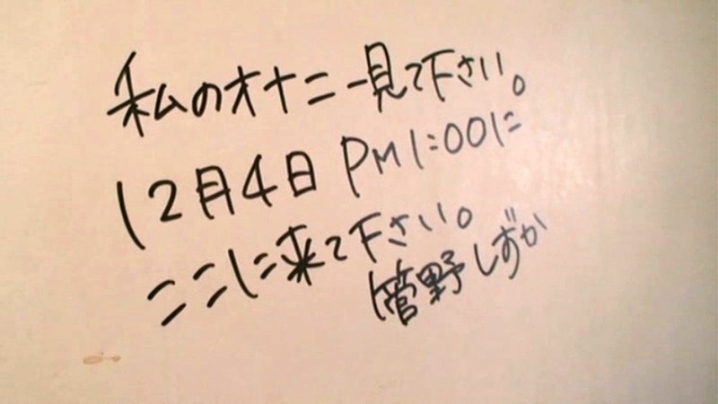 私のオナニー見て下さい。
12月4日 PM1:00に
ここに来て下さい。
菅野しずか